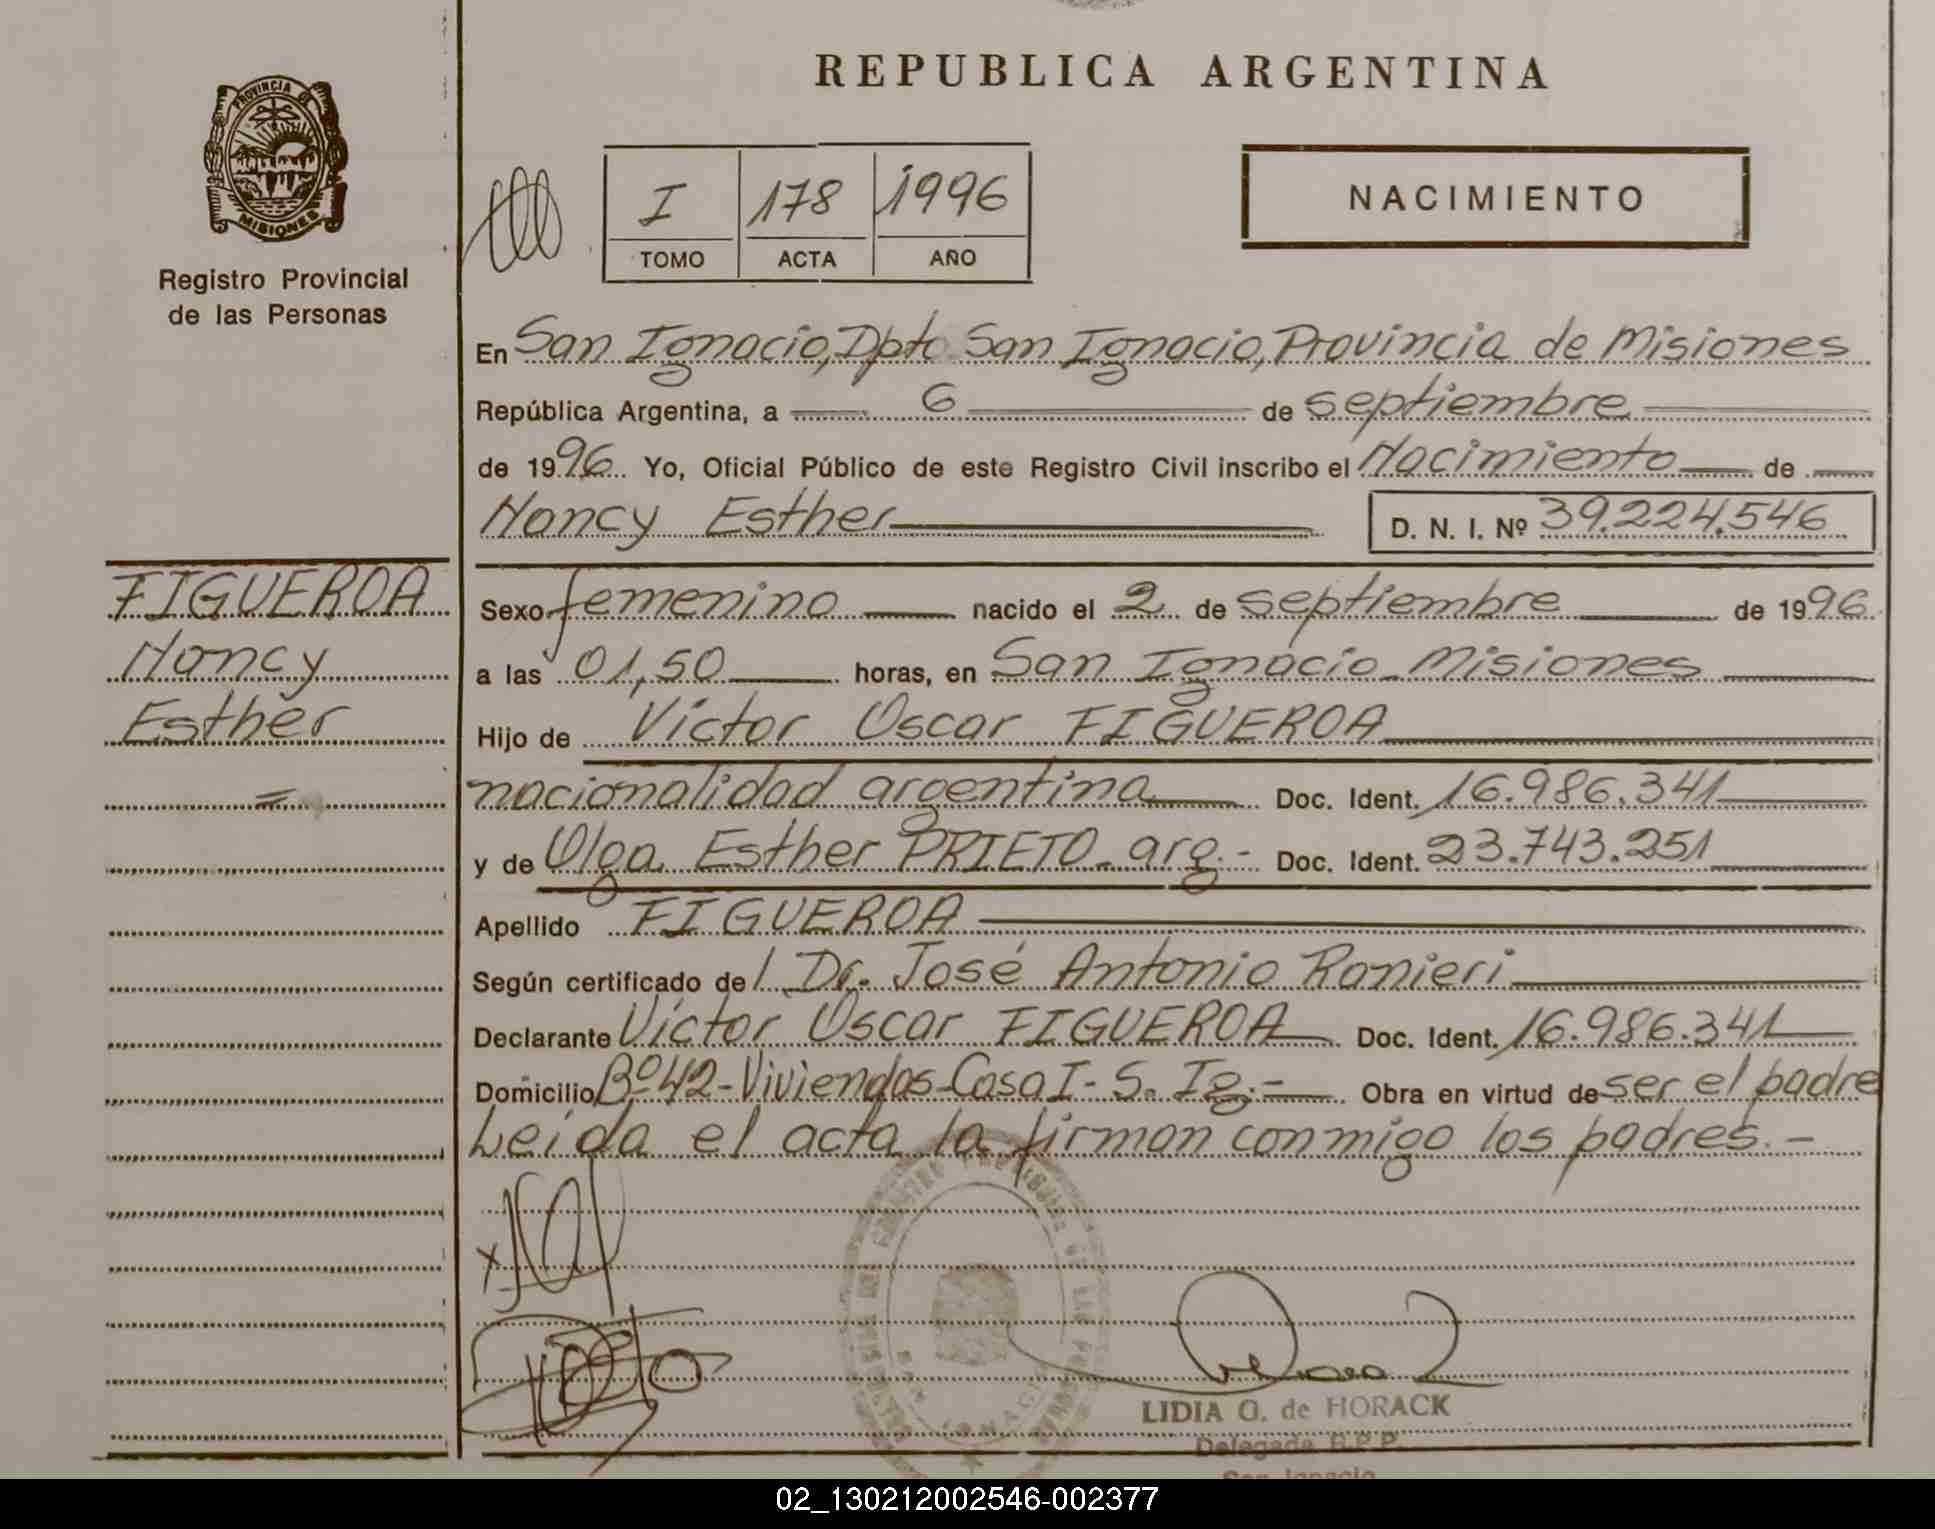 REPUBLICA ARGENTINA
PROVINCIA DE
MISIONES
Registro Provincial
de las Personas
I 178 1996
TOMO ACTA AÑO
NACIMIENTO
En San Ignacio, Dpto San Ignacio, Provincia de Misiones
República Argentina, a 6 de septiembre
de 1996 Yo, Oficial Público de este Registro Civil inscribo el Nacimiento de
Nancy Esther D. N. I. Nº 39.224.546
FIGUEROA
Nancy
Esther
=
Sexo femenino nacido el 2 de septiembre de 1996
a las 01,50 horas, en San Ignacio - Misiones
Hijo de Víctor Oscar FIGUEROA
nacionalidad argentina Doc. Ident. 16.986.341
y de Olga Esther PRIETO - arg.- Doc. Ident. 23.743.251
Apellido FIGUEROA
Según certificado del Dr. José Antonio Ranieri
Declarante Víctor Oscar FIGUEROA Doc. Ident. 16.986.341
Domicilio Bº 42 - Viviendas - Casa I - S. Ig.- Obra en virtud de ser el padre
Leída el acta la firman conmigo los padres.-
LIDIA G. de HORACK
Delegada R.P.P.
San Ignacio
02_130212002546-002377